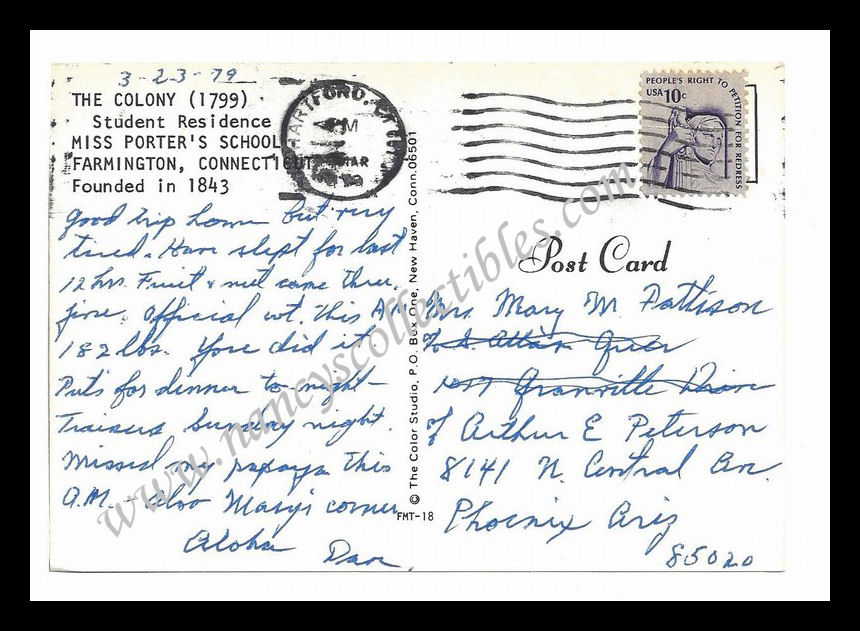 3-23-79
THE COLONY (1799)
Student Residence
MISS PORTER'S SCHOOL
FARMINGTON, CONNECTICUT
Founded in 1843
HARTFORD, CT
MAR
PEOPLE'S RIGHT TO PETITION FOR REDRESS
USA 10c
Good trip home but very
tired. Have slept for last
12 hrs. Fruit & nut came thru
fine. Official wt. this AM
182 lbs. You did it.
Puts for dinner to-night-
Trainers Sunday night.
Missed my papaya this
A.M. - also Mary's corner
Aloha
Dan
© The Color Studio, P.O. Box One, New Haven, Conn. 06501
FMT-18
Post Card
Mrs. Mary M Pattison
Granville Drive
% Arthur E Peterson
8141 N. Central Av.
Phoenix Ariz
85020
www.nancyscollectibles.com